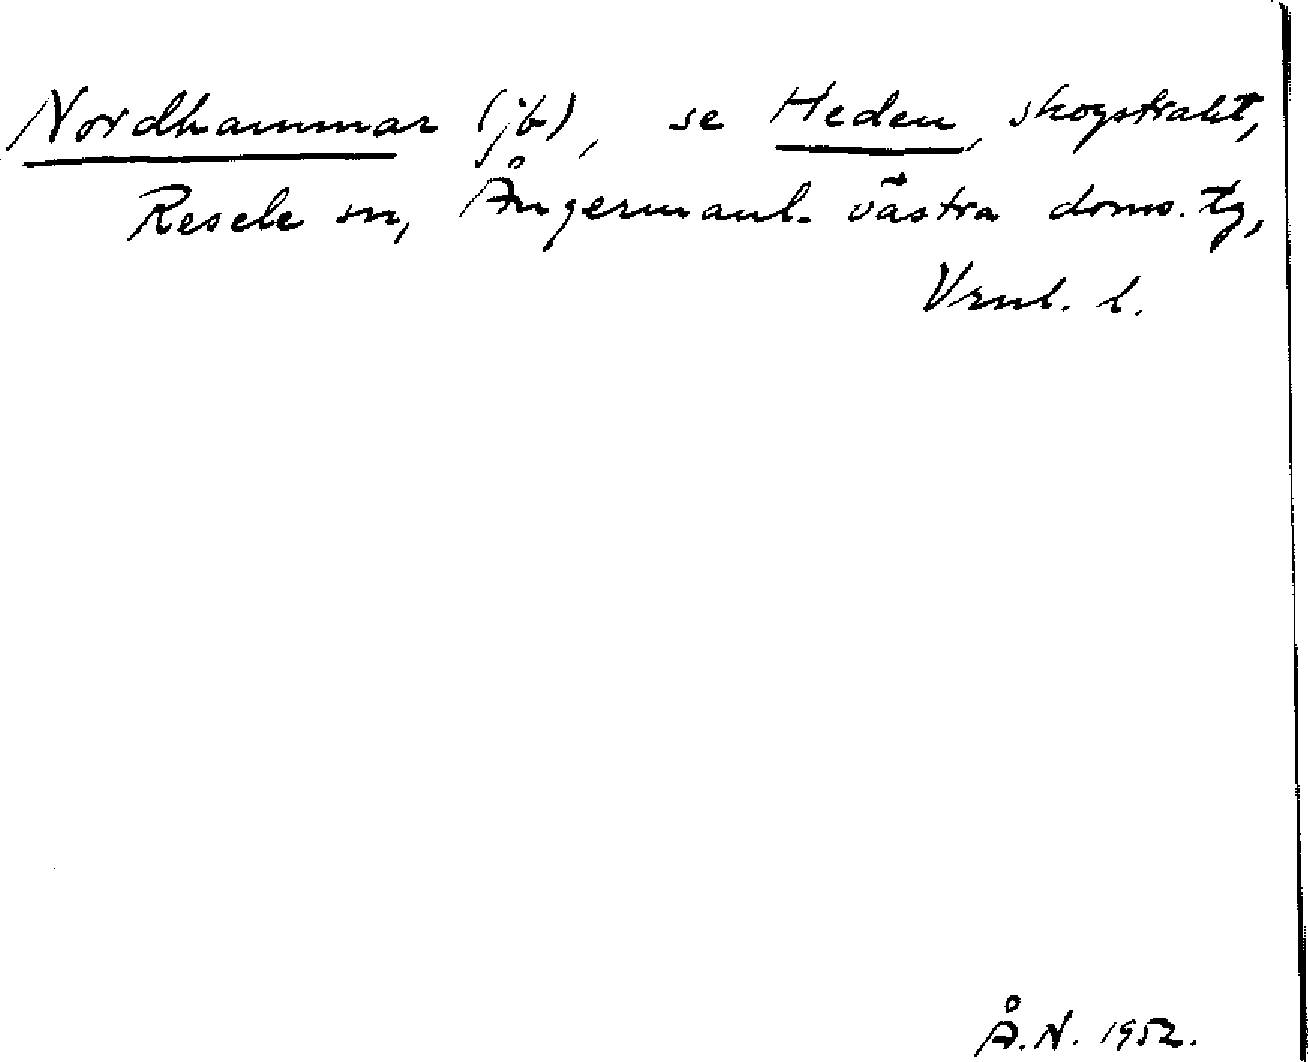 Nordhammar (jb), se Heden, skogstrakt,
Resele sn, Ångermanl. västra doms. tg,
Vrnl. l.
Å.N. 1952.